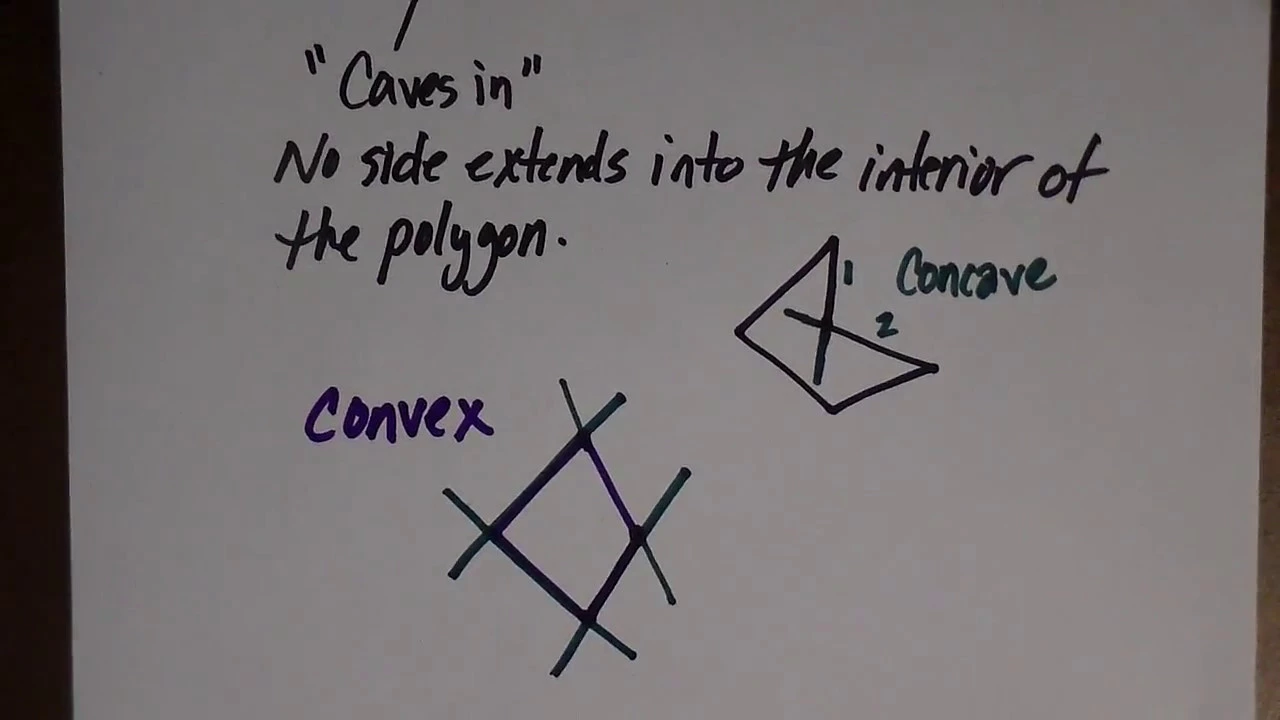 "Caves in"
No side extends into the interior of
the polygon.
1 Concave
2
Convex